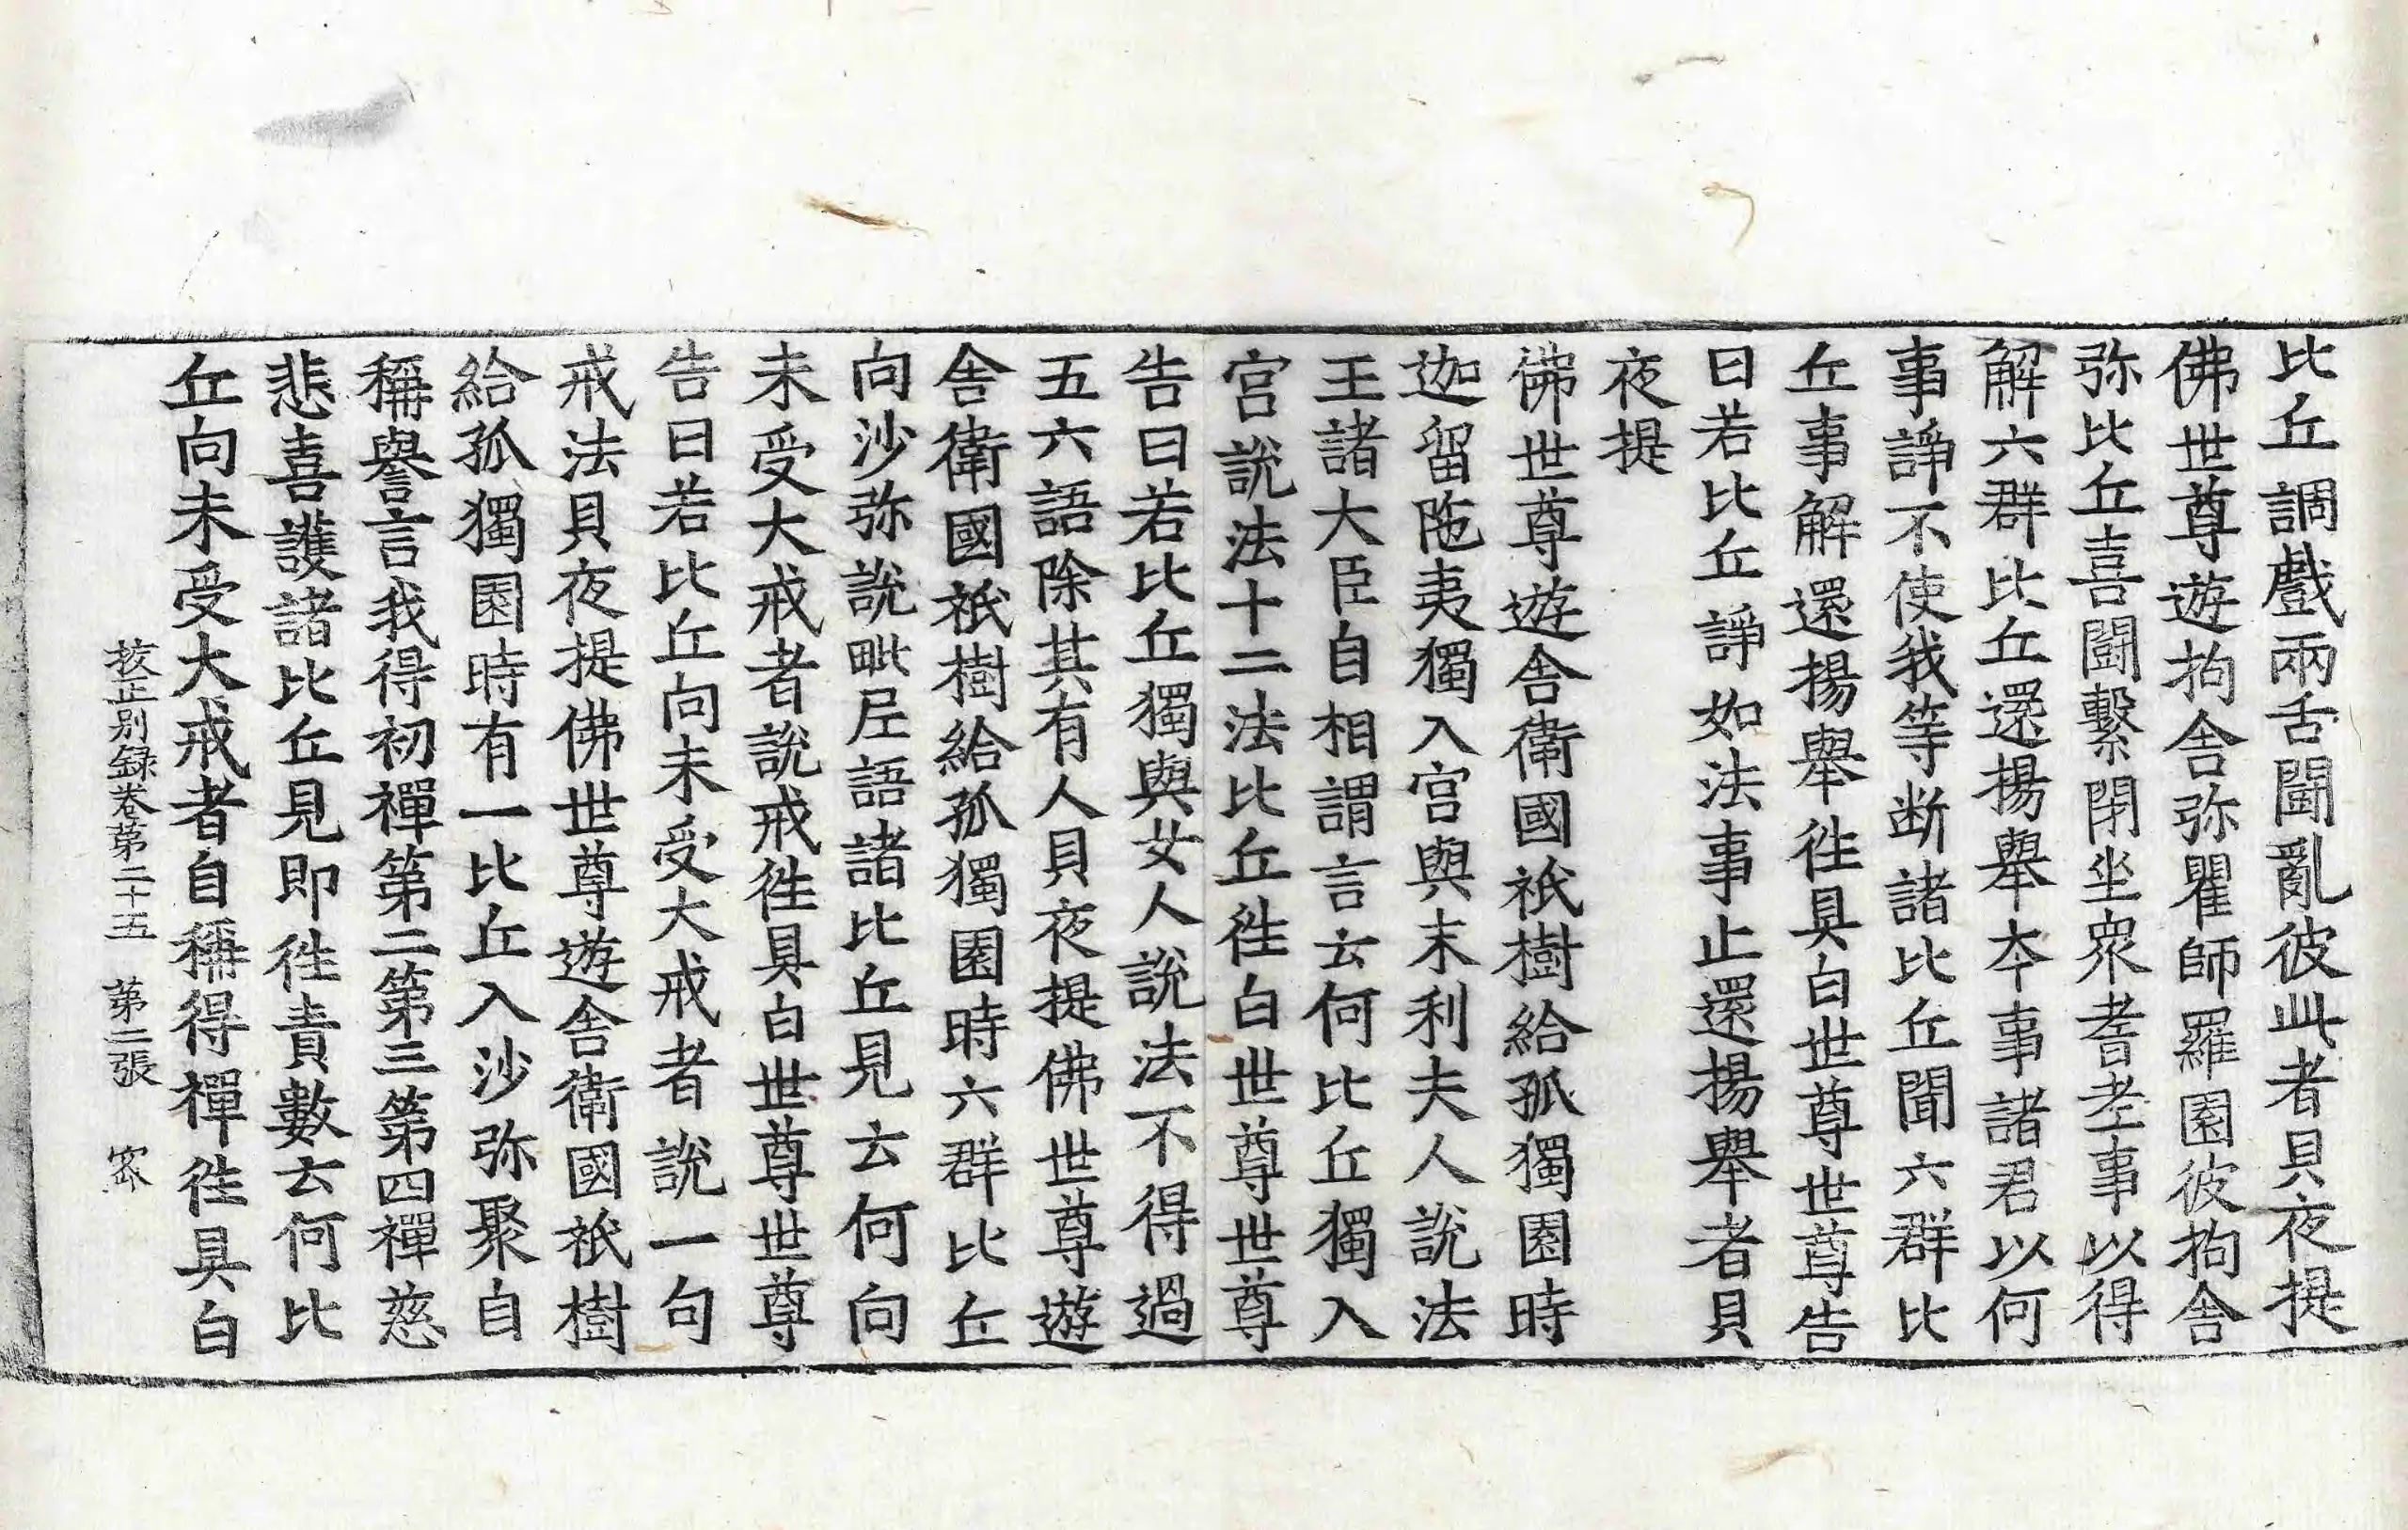 比丘調戲兩舌鬪亂彼此者貝夜提
佛世尊遊拘舍弥瞿師羅園彼拘舍
弥比丘喜鬪繫閉坐衆耆老事以得
解六群比丘還揚舉本事諸君以何
事諍不使我等断諸比丘聞六群比
丘事解還揚舉徃具白世尊世尊告
曰若比丘諍如法事止還揚舉者貝
夜提
佛世尊遊舍衛國祇樹給孤獨園時
迦留陁夷獨入宮與末利夫人說法
王諸大臣自相謂言云何比丘獨入
宮說法十二法比丘徃白世尊世尊
告曰若比丘獨與女人說法不得過
五六語除其有人貝夜提佛世尊遊
舍衛國祇樹給孤獨園時六群比丘
向沙弥說毗尼語諸比丘見云何向
未受大戒者說戒徃具白世尊世尊
告曰若比丘向未受大戒者說一句
戒法貝夜提佛世尊遊舍衛國祇樹
給孤獨園時有一比丘入沙弥聚自
稱譽言我得初禪第二第三第四禪慈
悲喜護諸比丘見即徃責數云何比
丘向未受大戒者自稱得禪徃具白
挍正別録卷第二十五 第二張 密